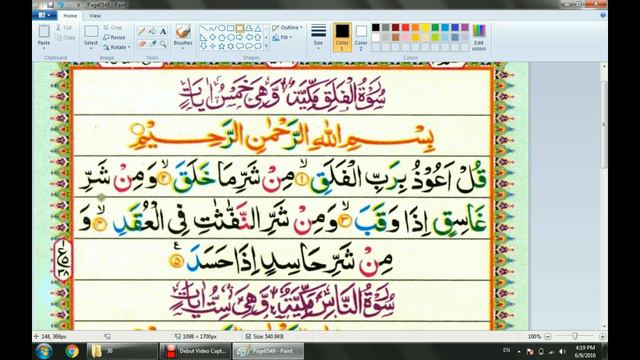 Page0549 - Paint
Home View
Paste
Cut
Copy
Select
Crop
Resize
Rotate
Brushes
Outline
Fill
Size
Color 1
Color 2
Edit colors
Clipboard Image Tools Shapes Colors
سُوْرَةُ الْفَلَقِ مَكِّيَّةٌ وَّهِیَ خَمْسُ اٰیَاتٍ
بِسْمِ اللهِ الرَّحْمٰنِ الرَّحِیْمِ
قُلْ اَعُوْذُ بِرَبِّ الْفَلَقِ ۙ۱ مِنْ شَرِّ مَا خَلَقَ ۙ۲ وَ مِنْ شَرِّ
غَاسِقٍ اِذَا وَقَبَ ۙ۳ وَ مِنْ شَرِّ النَّفّٰثٰتِ فِی الْعُقَدِ ۙ۴ وَ
مِنْ شَرِّ حَاسِدٍ اِذَا حَسَدَ ۵
سُوْرَةُ النَّاسِ مَكِّيَّةٌ وَّهِیَ سِتُّ اٰیَاتٍ
148, 369px 1098 × 1700px Size: 540.9KB 100%
30 Debut Video Capt... Page0549 - Paint EN 4:19 PM
6/9/2016